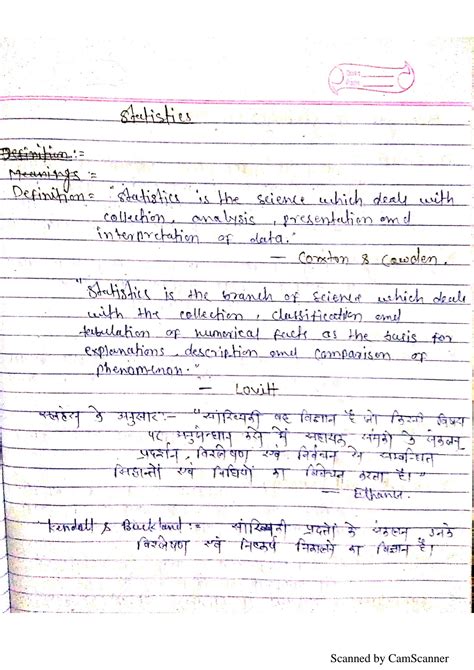 Statistics
Definition :=
Meanings :=
Definition = "Statistics is the science which deals with
collection, analysis, presentation and
interpretation of data."
— Coxton & Cowden.
"Statistics is the branch of science which deals
with the collection, classification and
tabulation of numerical facts as the basis for
explanations, description and comparison of
phenomenon."
— Lovitt
के अनुसार :- "सांख्यिकी वह विज्ञान है जो किसी विषय
पर अनुसन्धान करने में सहायक, समंकों के संकलन
प्रदर्शन, विश्लेषण एवं निर्वचन से सम्बन्धित
सिद्धान्तों एवं विधियों का विवेचन करता है।"
Kendall & Buckland := सांख्यिकी प्रदत्तों के संकलन उनके
विश्लेषण एवं निष्कर्ष निकालने का विज्ञान है।
Scanned by CamScanner